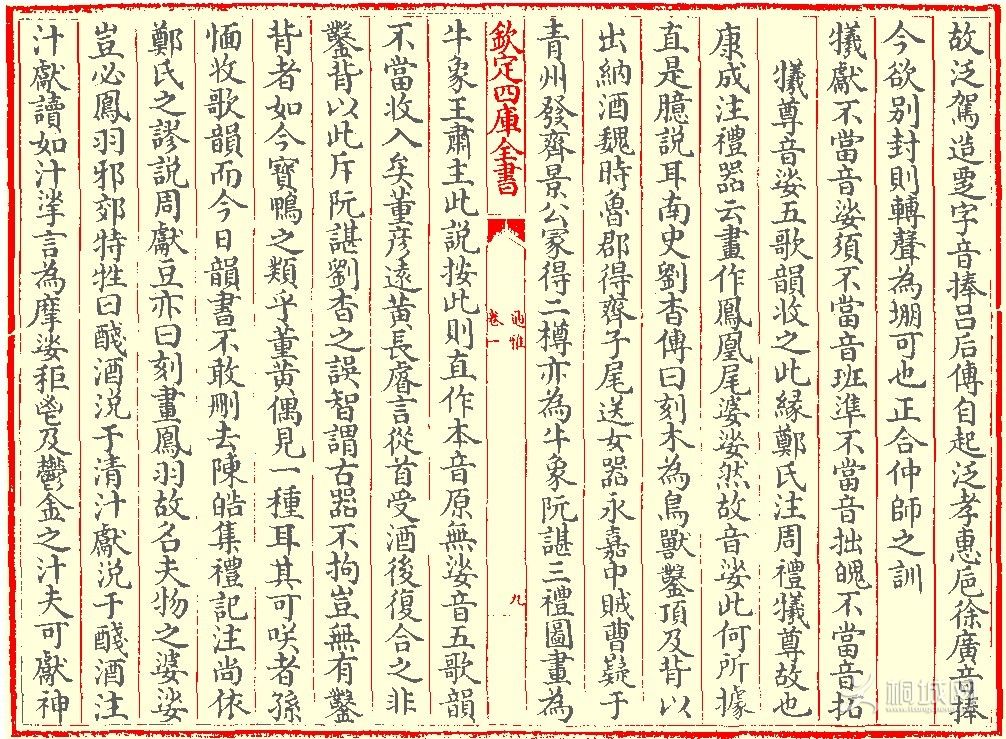 故泛駕造㕅字音捧吕后傳自起泛孝惠巵徐廣音捧
今欲别封則轉聲為堋可也正合仲師之訓
犧獻不當音娑須不當音班準不當音拙魄不當音拓
犧尊音娑五歌韻收之此緣鄭氏注周禮犧尊故也
康成注禮器云畫作鳳凰尾婆娑然故音娑此何所據
直是臆説耳南史劉杳傳曰刻木為鳥獸鑿頂及背以
出納酒魏時魯郡得齊子尾送女器永嘉中賊曹嶷于
青州發齊景公冢得二樽亦為牛象阮諶三禮圖畫為
欽定四庫全書
通雅
卷一
九
牛象王肅主此説按此則直作本音原無娑音五歌韻
不當收入矣董彦逺黄長睿言從首受酒後復合之非
鑿背以此斥阮諶劉杳之誤智謂古器不拘豈無有鑿
背者如今寳鴨之類乎董黄偶見一種耳其可咲者孫
愐收歌韻而今日韻書不敢刪去陳皓集禮記注尚依
鄭氏之謬説周獻豆亦曰刻畫鳳羽故名夫物之婆娑
豈必鳳羽邪郊特牲曰醆酒涚于清汁獻涚于醆酒注
汁獻讀如汁挲言為摩挲秬鬯及鬱金之汁夫可獻神
桐城网